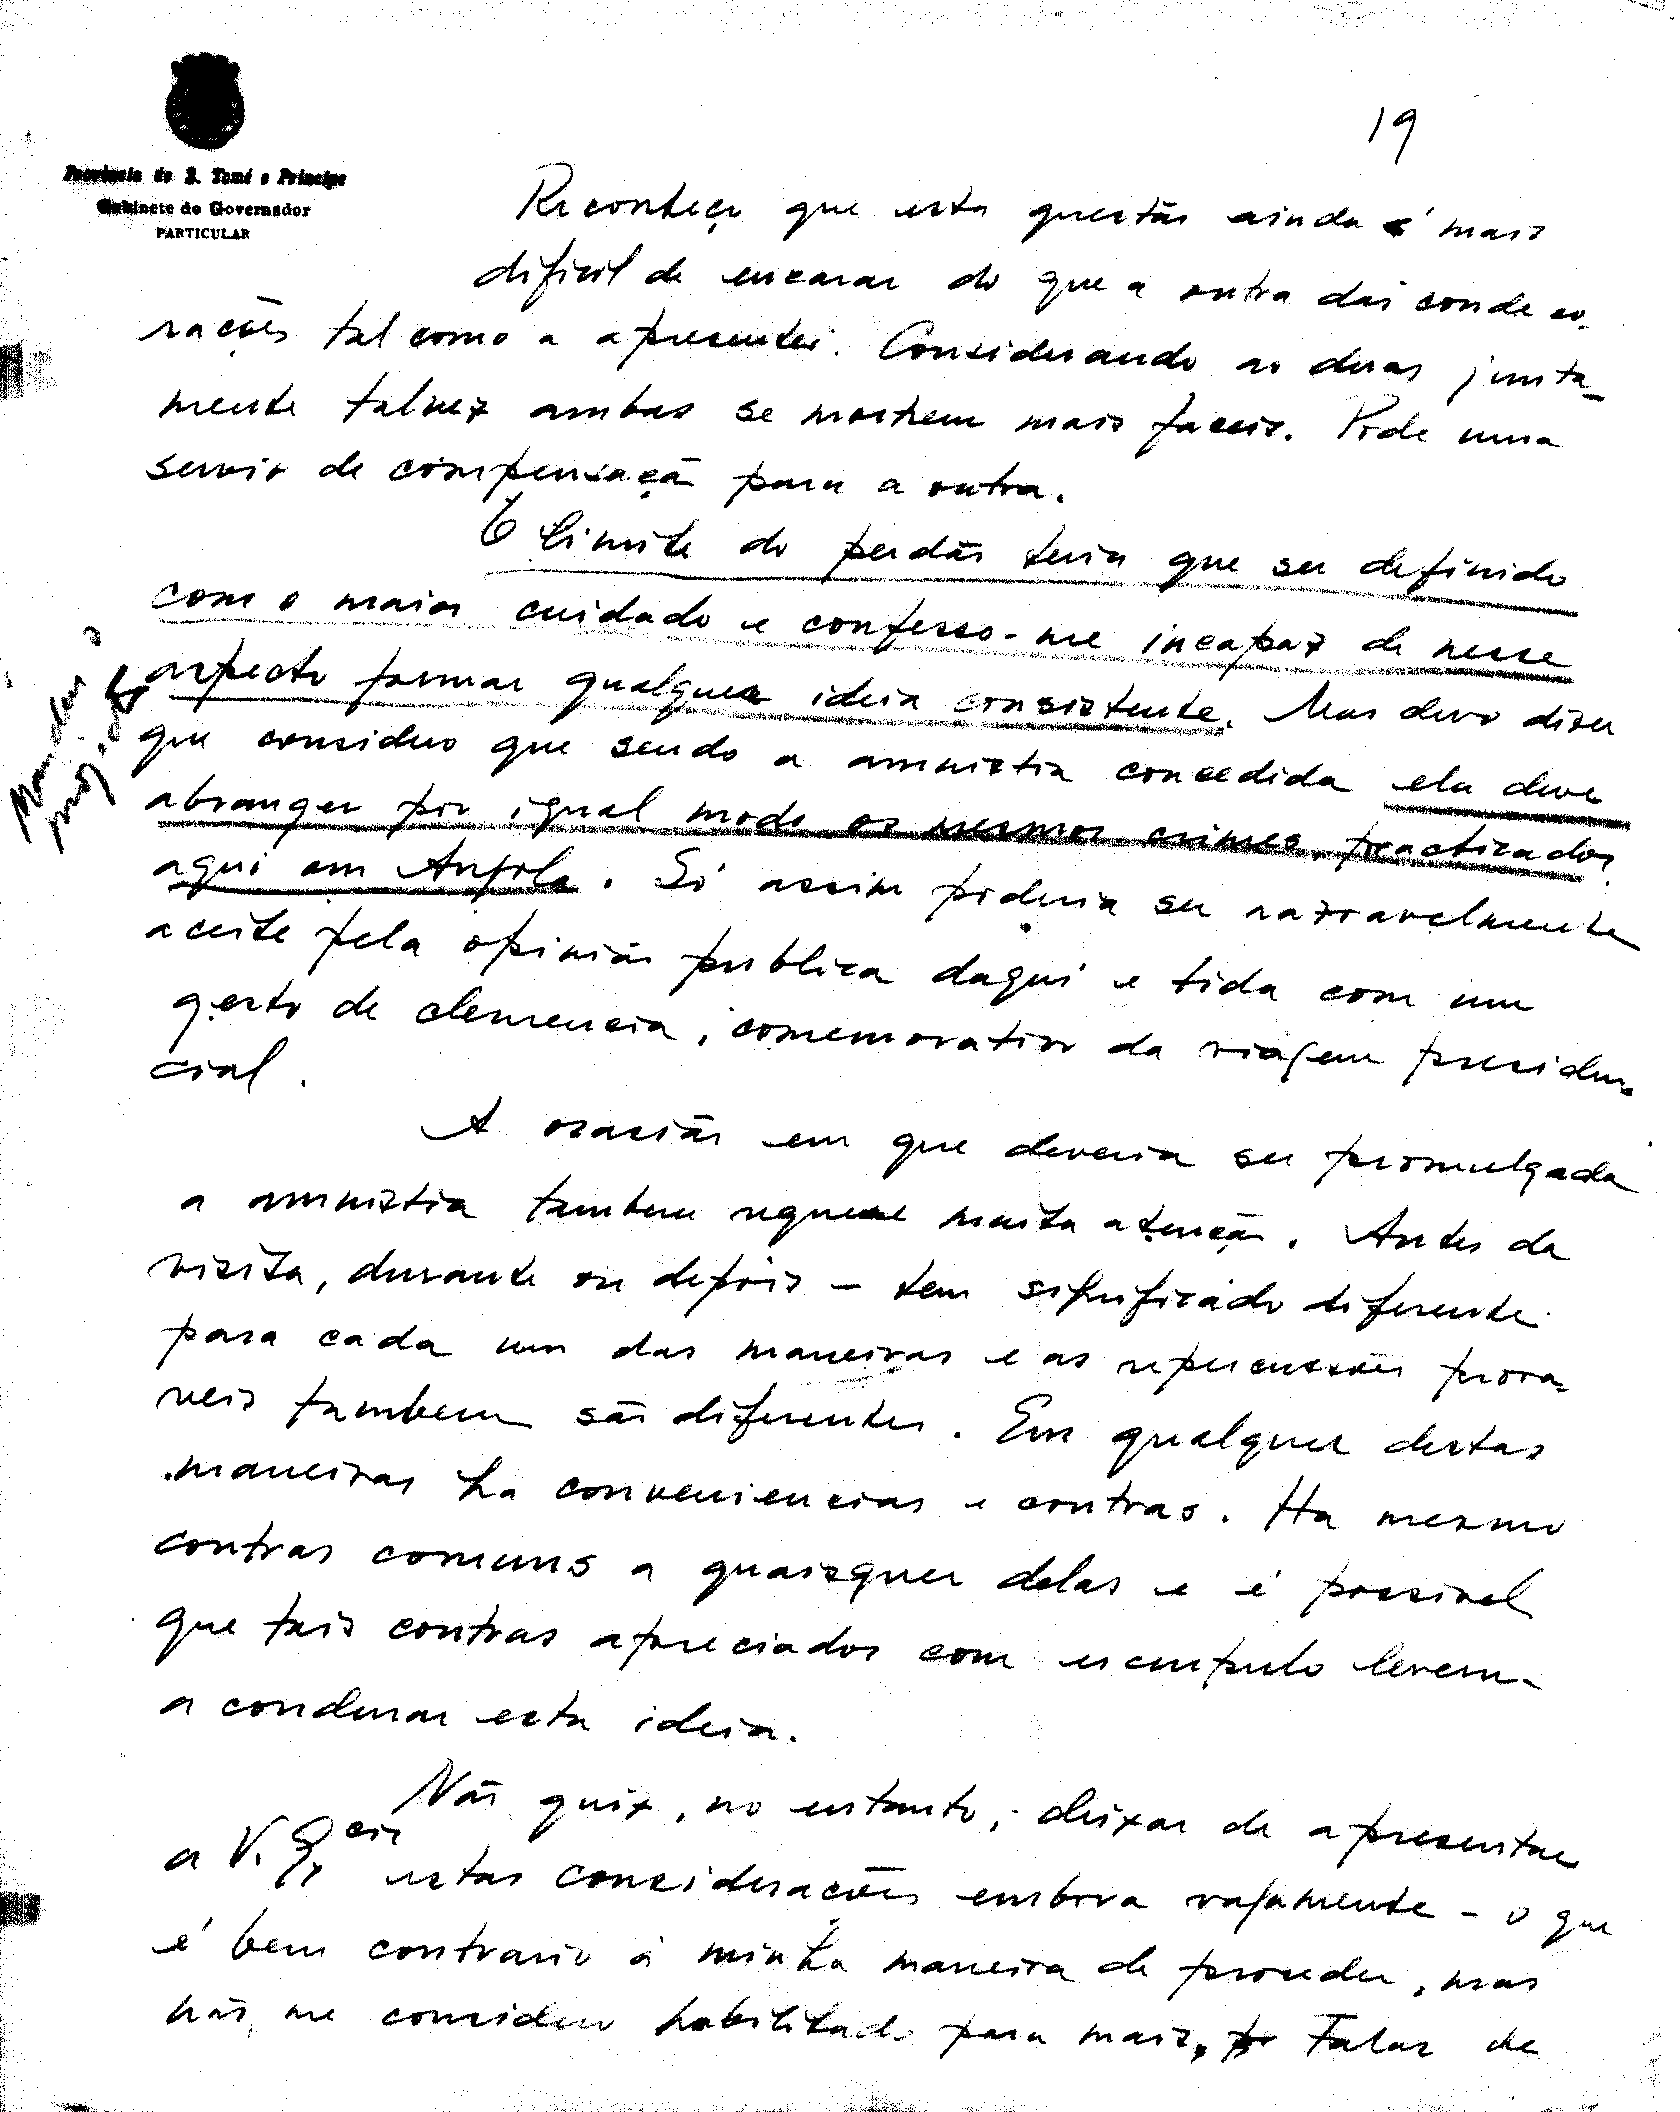 19
Provincia de S. Tomé e Principe
Gabinete do Governador
PARTICULAR
Reconheço que esta questão ainda é mais
dificil de encarar do que a outra das condeco-
rações tal como a apresentei. Considerando as duas junta-
mente talvez ambas se mostrem mais faceis. Pode uma
servir de compensação para a outra.
O limite do perdão teria que ser definido
com o maior cuidado e confesso-me incapaz de nesse
aspecto formar qualquer ideia consistente. Mas devo dizer
que considero que sendo a amnistia concedida ela deve
abranger por igual modo os mesmos crimes practicados
aqui em Angola. Só assim poderia ser razoavelmente
aceite pela opinião publica daqui e tida com um
gesto de clemencia, comemorativo da viagem presiden-
cial.
A ocasião em que deveria ser promulgada
a amnistia tambem requere muita atenção. Antes da
visita, durante ou depois - tem significado diferente
para cada um das maneiras e as repercussões prova-
veis tambem são diferentes. Em qualquer destas
maneiras ha conveniencias e contras. Ha mesmo
contras comuns a quaisquer delas e é possivel
que tais contras apreciados com escrupulo levem
a condenar esta ideia.
Não quix, no entanto, deixar de apresentar
a V. Ex.cia estas considerações embora vagamente - o que
é bem contrario á minha maneira de proceder, mas
não me considero habilitado para mais. Falar de